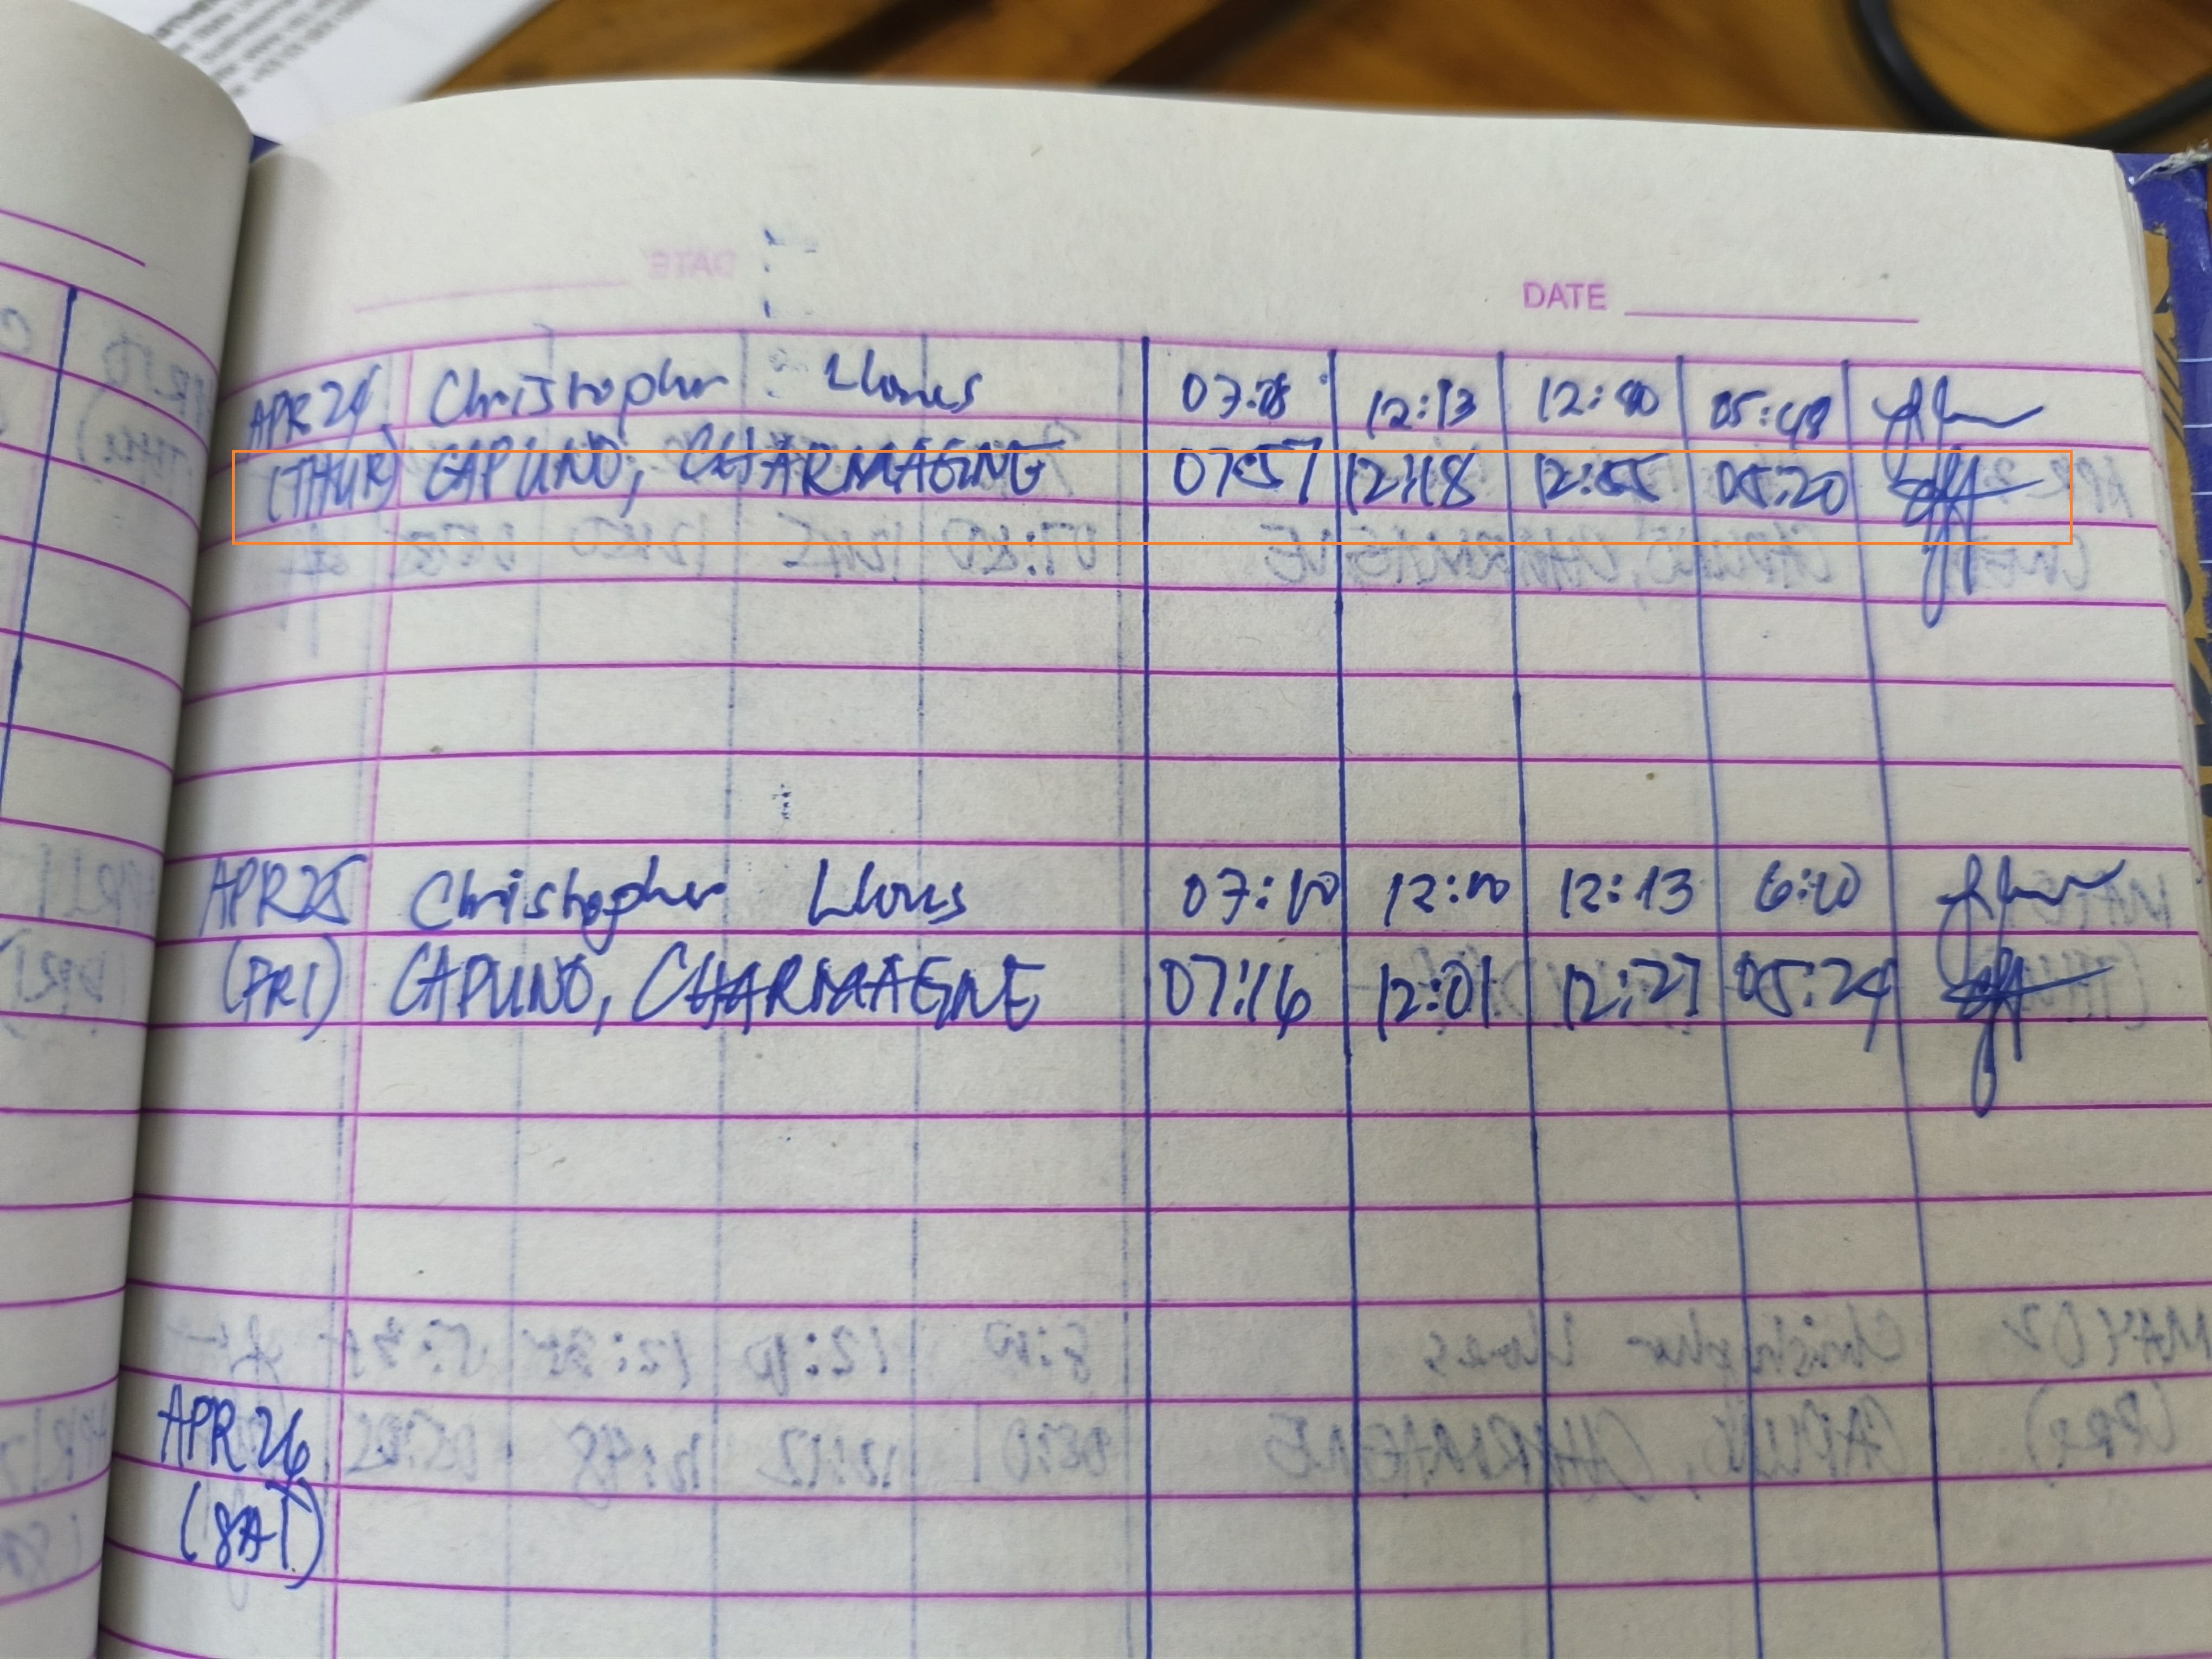 DATE
APR 24 Christopher Llones 07:28 12:13 12:40 05:49
(THUR) CAPUNO, CHARMAGNE 07:57 12:18 12:55 05:20
APR 25 Christopher Llones 07:10 12:10 12:13 6:10
(FRI) CAPUNO, CHARMAGNE 07:16 12:01 12:27 05:24
APR 26
(SAT)